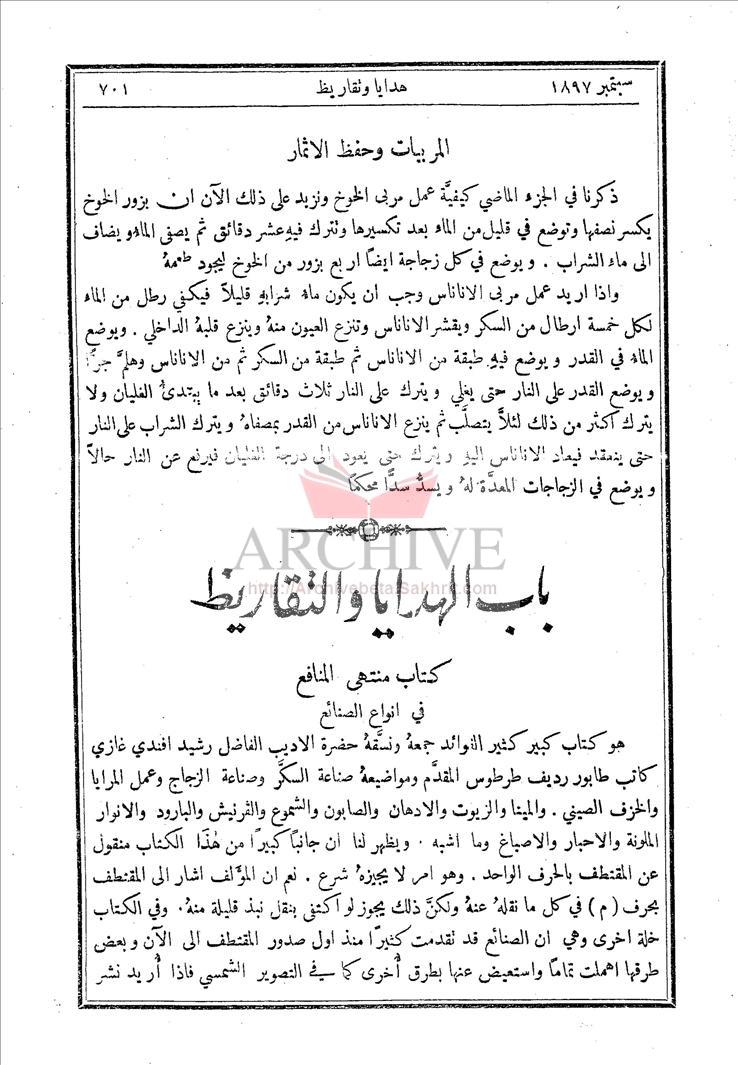 سبتمبر ١٨٩٧ هدايا وتقاريظ ٧٠١
المربيات وحفظ الاثمار
ذكرنا في الجزء الماضي كيفيَّة عمل مربى الخوخ ونزيد على ذلك الآن ان بزور الخوخ
يكسر نصفها وتوضع في قليل من الماء بعد تكسيرها وتترك فيهِ عشر دقائق ثم يصفى الماء ويضاف
الى ماء الشراب . ويوضع في كل زجاجة ايضًا اربع بزور من الخوخ ليجود طعمهُ
واذا اريد عمل مربى الاناناس وجب ان يكون ماء شرابهِ قليلاً فيكفي رطل من الماء
لكل خمسة ارطال من السكر ويقشر الاناناس وتنزع العيون منهُ وينزع قلبهُ الداخلي . ويوضع
الماء في القدر ويوضع فيهِ طبقة من الاناناس ثم طبقة من السكر ثم من الاناناس وهلمَّ جرًّا
ويوضع القدر على النار حتى يغلي ويترك على النار ثلاث دقائق بعد ما يبتدئُ الغليان ولا
يترك اكثر من ذلك لئلاَّ يتصلَّب ثم ينزع الاناناس من القدر بمصفاة ويترك الشراب على النار
حتى ينعقد فيعاد الاناناس اليهِ ويترك حتى يعود الى درجة الغليان فيرفع عن النار حالاً
ويوضع في الزجاجات المعدَّة لهُ ويسدُّ سدًّا محكمًا
ARCHIVE
http://Archivebeta.Sakhrit.com
باب الهدايا والتقاريظ
كتاب منتهى المنافع
في انواع الصنائع
هو كتاب كبير كثير الفوائد جمعهُ ونسَّقهُ حضرة الاديب الفاضل رشيد افندي غازي
كاتب طابور رديف طرطوس المقدَّم ومواضيعهُ صناعة السكَّر وصناعة الزجاج وعمل المرايا
والخزف الصيني . والمينا والزيوت والادهان والصابون والشموع والفرنيش والبارود والانوار
الملونة والاحبار والاصباغ وما اشبه . ويظهر لنا ان جانبًا كبيرًا من هٰذا الكتاب منقول
عن المقتطف بالحرف الواحد . وهو امر لا يجيزهُ شرع . نعم ان المؤلف اشار الى المقتطف
بحرف ( م ) في كل ما نقلهُ عنهُ ولكنَّ ذلك يجوز لو اكتفى بنقل نبذ قليلة منهُ . وفي الكتاب
خلة اخرى وهي ان الصنائع قد تقدمت كثيرًا منذ اول صدور المقتطف الى الآن وبعض
طرقها اهملت تمامًا واستعيض عنها بطرق أُخرى كما في التصوير الشمسي فاذا أُريد نشر